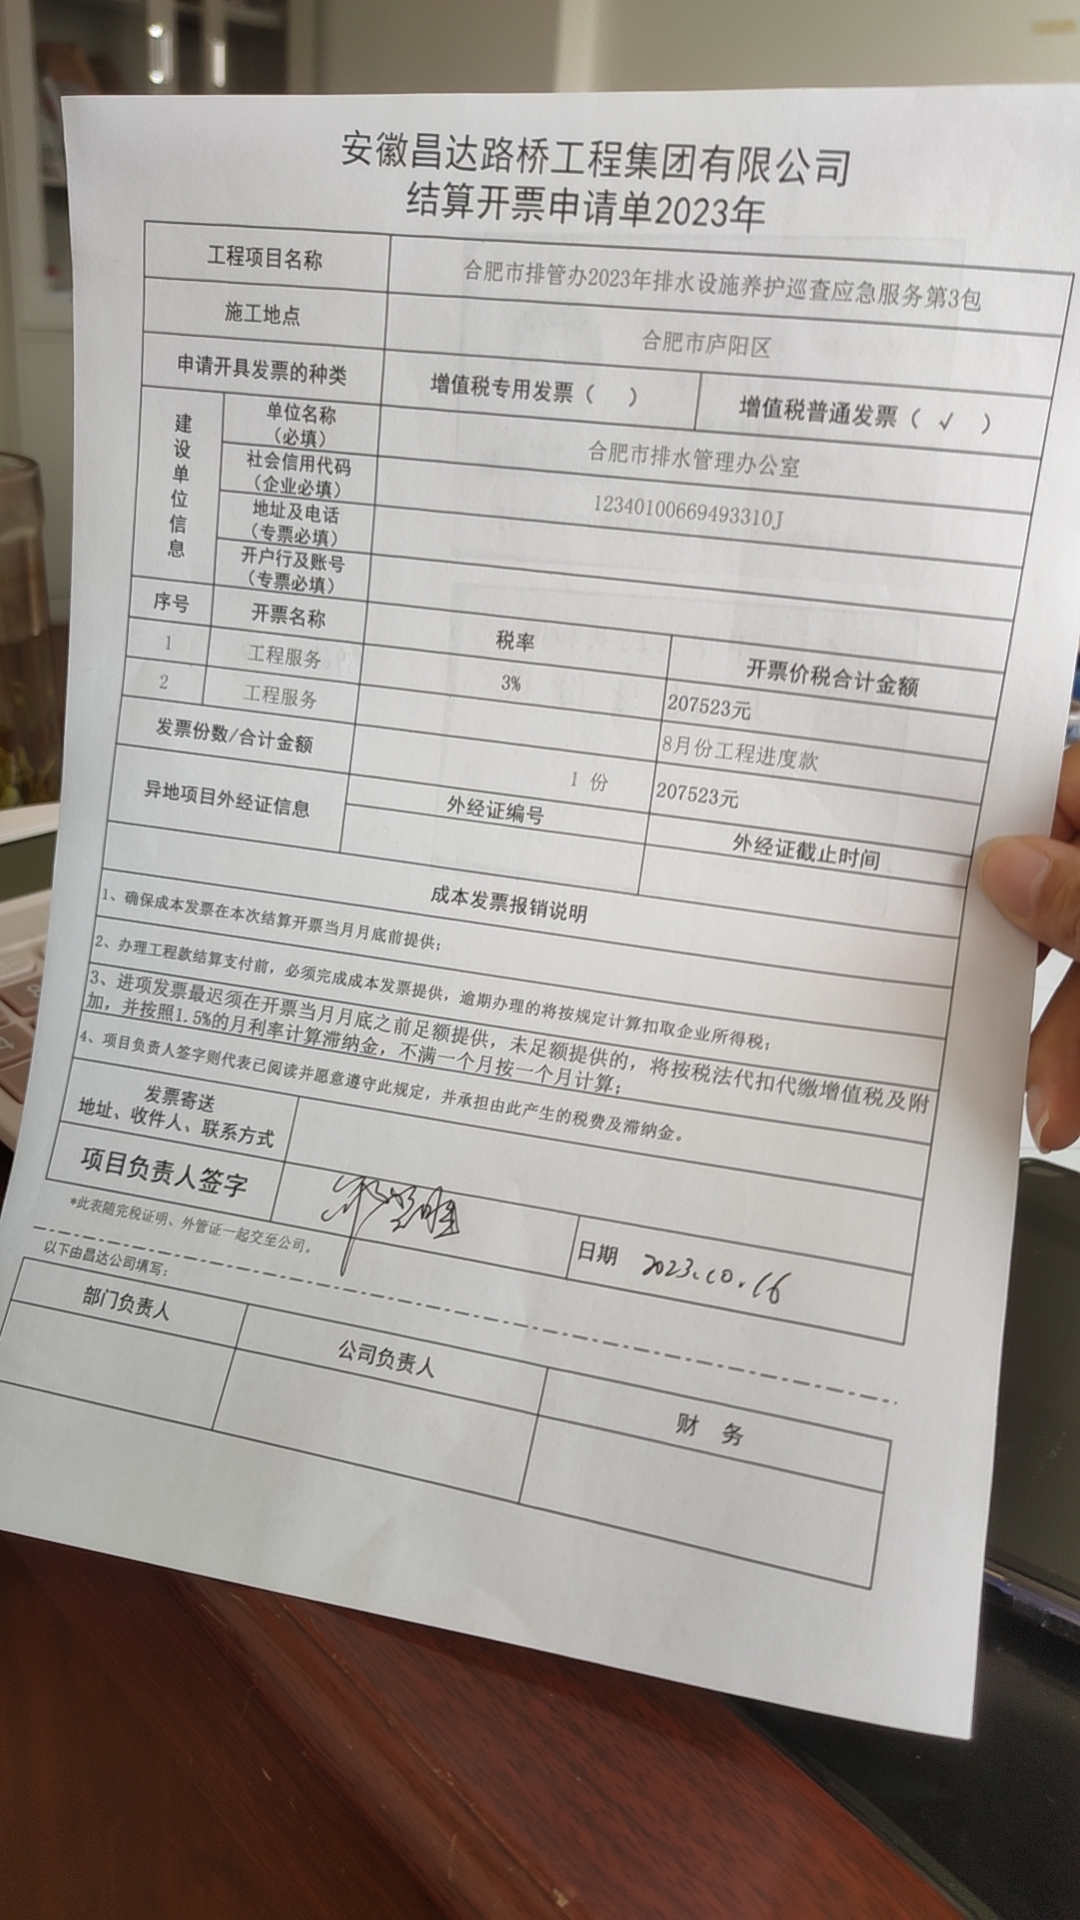 安徽昌达路桥工程集团有限公司
结算开票申请单2023年
工程项目名称 合肥市排管办2023年排水设施养护巡查应急服务第3包
施工地点 合肥市庐阳区
申请开具发票的种类 增值税专用发票（ ） 增值税普通发票（ √ ）
建设单位信息
单位名称（必填） 合肥市排水管理办公室
社会信用代码（企业必填） 12340100669493310J
地址及电话（专票必填）
开户行及账号（专票必填）
序号 开票名称 税率 开票价税合计金额
1 工程服务 3% 207523元
2 工程服务 8月份工程进度款
发票份数/合计金额 1 份 207523元
异地项目外经证信息 外经证编号 外经证截止时间
成本发票报销说明
1、确保成本发票在本次结算开票当月月底前提供；
2、办理工程款结算支付前，必须完成成本发票提供，逾期办理的将按规定计算扣取企业所得税；
3、进项发票最迟须在开票当月月底之前足额提供，未足额提供的，将按税法代扣代缴增值税及附
加，并按照1.5%的月利率计算滞纳金，不满一个月按一个月计算；
4、项目负责人签字则代表已阅读并愿意遵守此规定，并承担由此产生的税费及滞纳金。
发票寄送
地址、收件人、联系方式
项目负责人签字 日期 2023.10.16
*此表随完税证明、外管证一起交至公司。
以下由昌达公司填写：
部门负责人 公司负责人 财 务